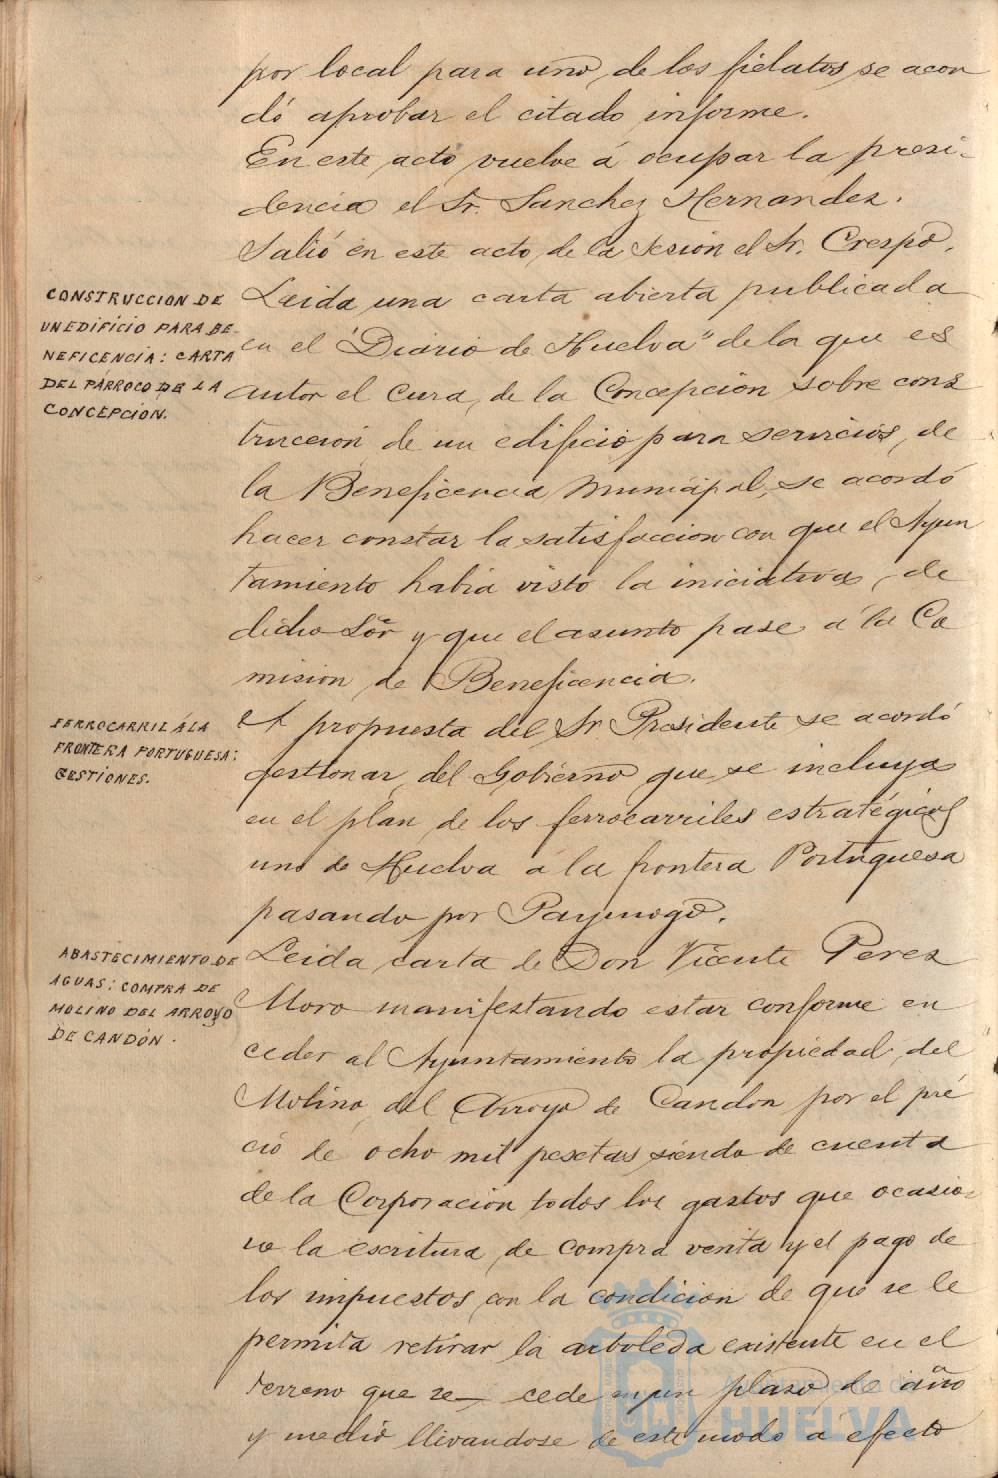 por local para uno, de los fielatos, se acor
dó aprobar el citado informe.
En este acto vuelve á ocupar la presi-
dencia el Sr. Sanchez Hernandez.
Salió en este acto de la sesion el Sr. Crespo.
CONSTRUCCION DE
UN EDIFICIO PARA BE-
NEFICENCIA: CARTA
DEL PÁRROCO DE LA
CONCEPCIÓN.
Leida una carta abierta publicada
en el "Diario de Huelva" de la que es
autor el Cura, de la Concepcion sobre cons
truccion de un edificio para servicios, de
la Beneficencia Municipal, se acordó
hacer constar la satisfaccion con que el Ayun
tamiento habia visto la iniciativa, de
dicho Sor y que el asunto pase á la Co
mision de Beneficencia.
FERROCARRIL Á LA
FRONTERA PORTUGUESA:
GESTIONES.
A propuesta del Sr Presidente se acordó
gestionar, del Gobierno que se incluya
en el plan de los ferrocarriles estratégicos
uno de Huelva á la frontera Portuguesa
pasando por Paymogo.
ABASTECIMIENTO DE
AGUAS: COMPRA DE
MOLINO DEL ARROYO
DE CANDÓN.
Leida carta de Don Vicente Perez
Moro manifestando estar conforme en
ceder al Ayuntamiento la propiedad, del
Molino, del Arroyo de Candon por el pre
cio de ocho mil pesetas siendo de cuenta
de la Corporacion todos los gastos que ocasio-
ne la escritura, de compra venta y el pago de
los impuestos, con la condicion de que se le
permita retirar la arboleda existente en el
terreno que se cede en un plazo de año
y medio llevandose de este modo á efecto
Ayuntamiento de
HUELVA